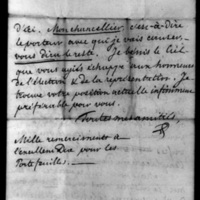 d'ici. Mon chancellier, c'est-à-dire
le porteur avec qui je vais
vous dira le reste. Je bénis le ciel
que vous ayés échappé aux horreurs
de l'élection & de la représentation. Je
trouve votre position actuelle infiniment
préférable pour vous.
Toutes mes amitiés.
Mille remerciements à
l'excellent Duc pour les
Portefeuilles.